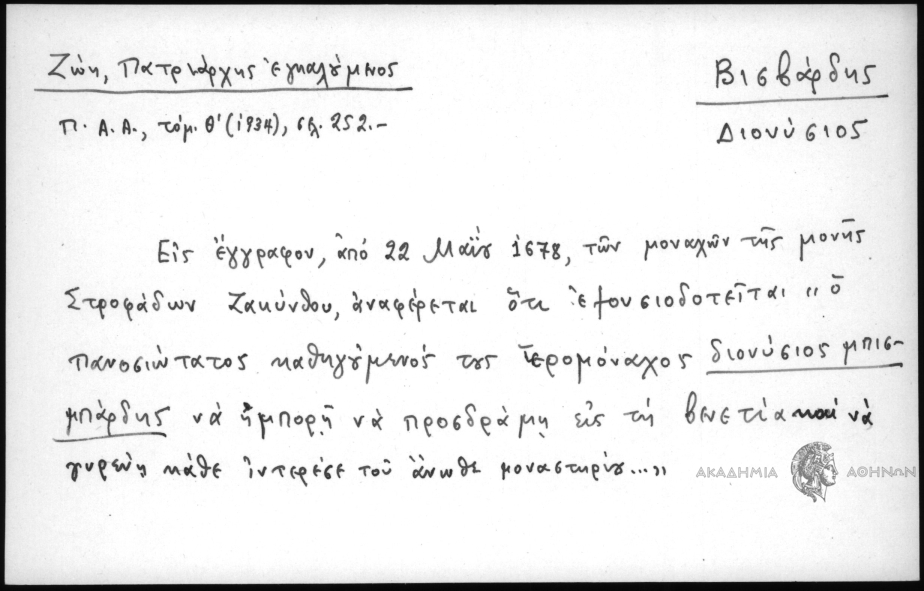 Ζώη, Πατριάρχης ἐγκαλούμενος
Π. Α. Α., τόμ. Θ' (1934), σελ. 252.-
Βισβάρδης
Διονύσιος
Εἰς ἔγγραφον, ἀπό 22 Μαΐου 1678, τῶν μοναχῶν τῆς μονῆς
Στροφάδων Ζακύνθου, ἀναφέρεται ὅτι ἐξουσιοδοτεῖται „ ὁ
πανοσιώτατος καθηγούμενός τους ἱερομόναχος διονύσιος μπισ-
μπάρδης νά ἠμπορῇ νά προσδράμῃ εἰς τή βενετία καί νά
γυρεύῃ κάθε ἰντερέσε τοῦ ἄνωθε μοναστηρίου...„
ΑΚΑΔΗΜΙΑ ΑΘΗΝΩΝ